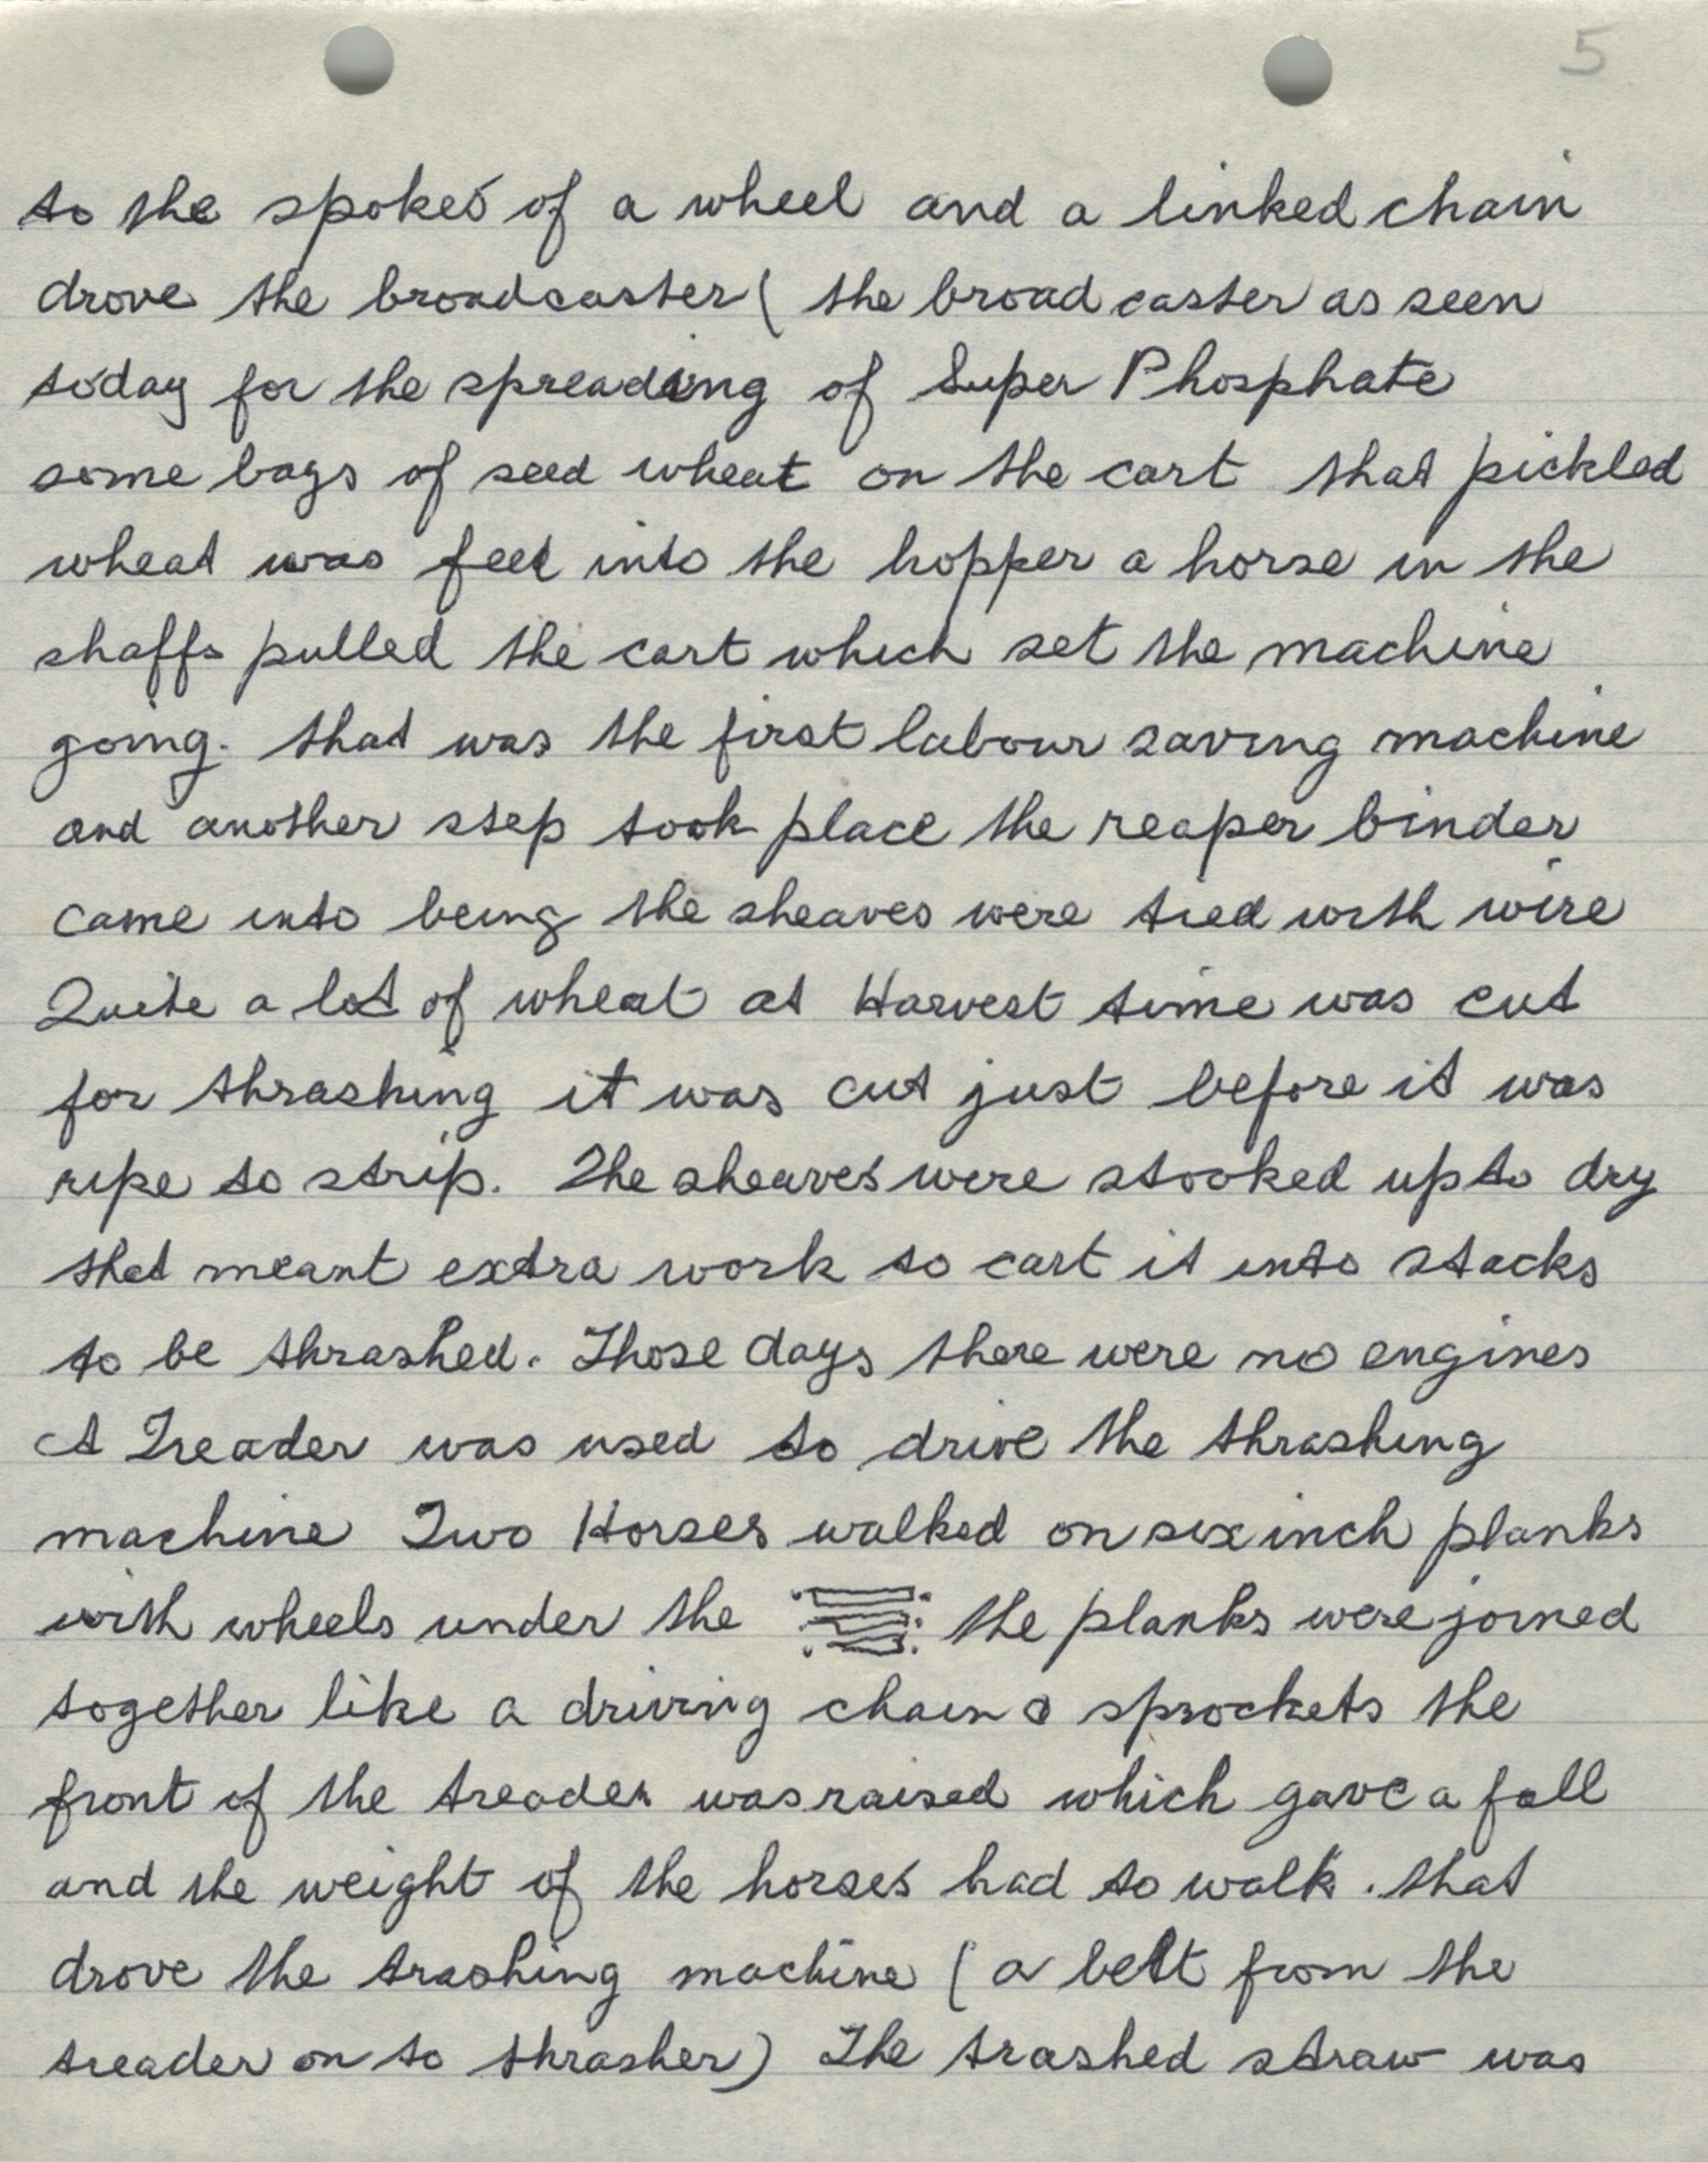 5
to the spokes of a wheel and a linked chain
drove the broadcaster ( the broad caster as seen
today for the spreading of Super Phosphate
some bags of seed wheat on the cart that pickled
wheat was feed into the hopper a horse in the
shaffs pulled the cart which set the machine
going. that was the first labour saving machine
and another step took place the reaper binder
came into being the sheaves were tied with wire
Quite a lot of wheat at Harvest time was cut
for thrashing it was cut just before it was
ripe to strip. The sheaves were stooked up to dry
that meant extra work to cart it into stacks
to be thrashed. Those days there were no engines
A Treader was used to drive the thrashing
machine Two Horses walked on six inch planks
with wheels under the the planks were joined
together like a driving chain & sprockets the
front of the treader was raised which gave a fall
and the weight of the horses had to walk. that
drove the trashing machine ( a belt from the
treader on to thrasher) The trashed straw was